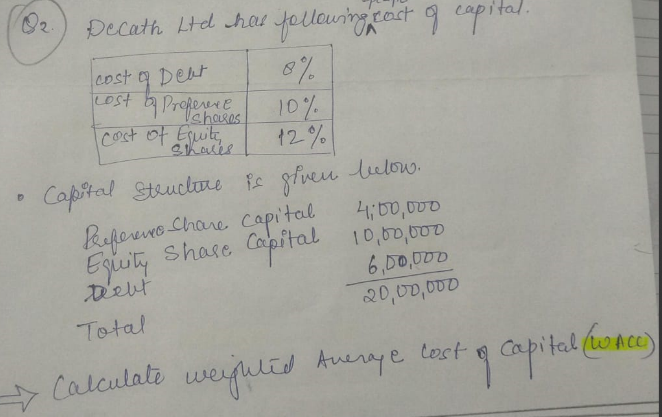 Q2. Decath Ltd has following cost of capital.
cost of Debt 8%
cost of Preference Shares 10%
cost of Equity Shares 12%
• Capital Structure is given below.
Preference Share capital 4,00,000
Equity Share Capital 10,00,000
Debt 6,00,000
Total 20,00,000
⇒ Calculate weighted Average Cost of Capital (WACC)